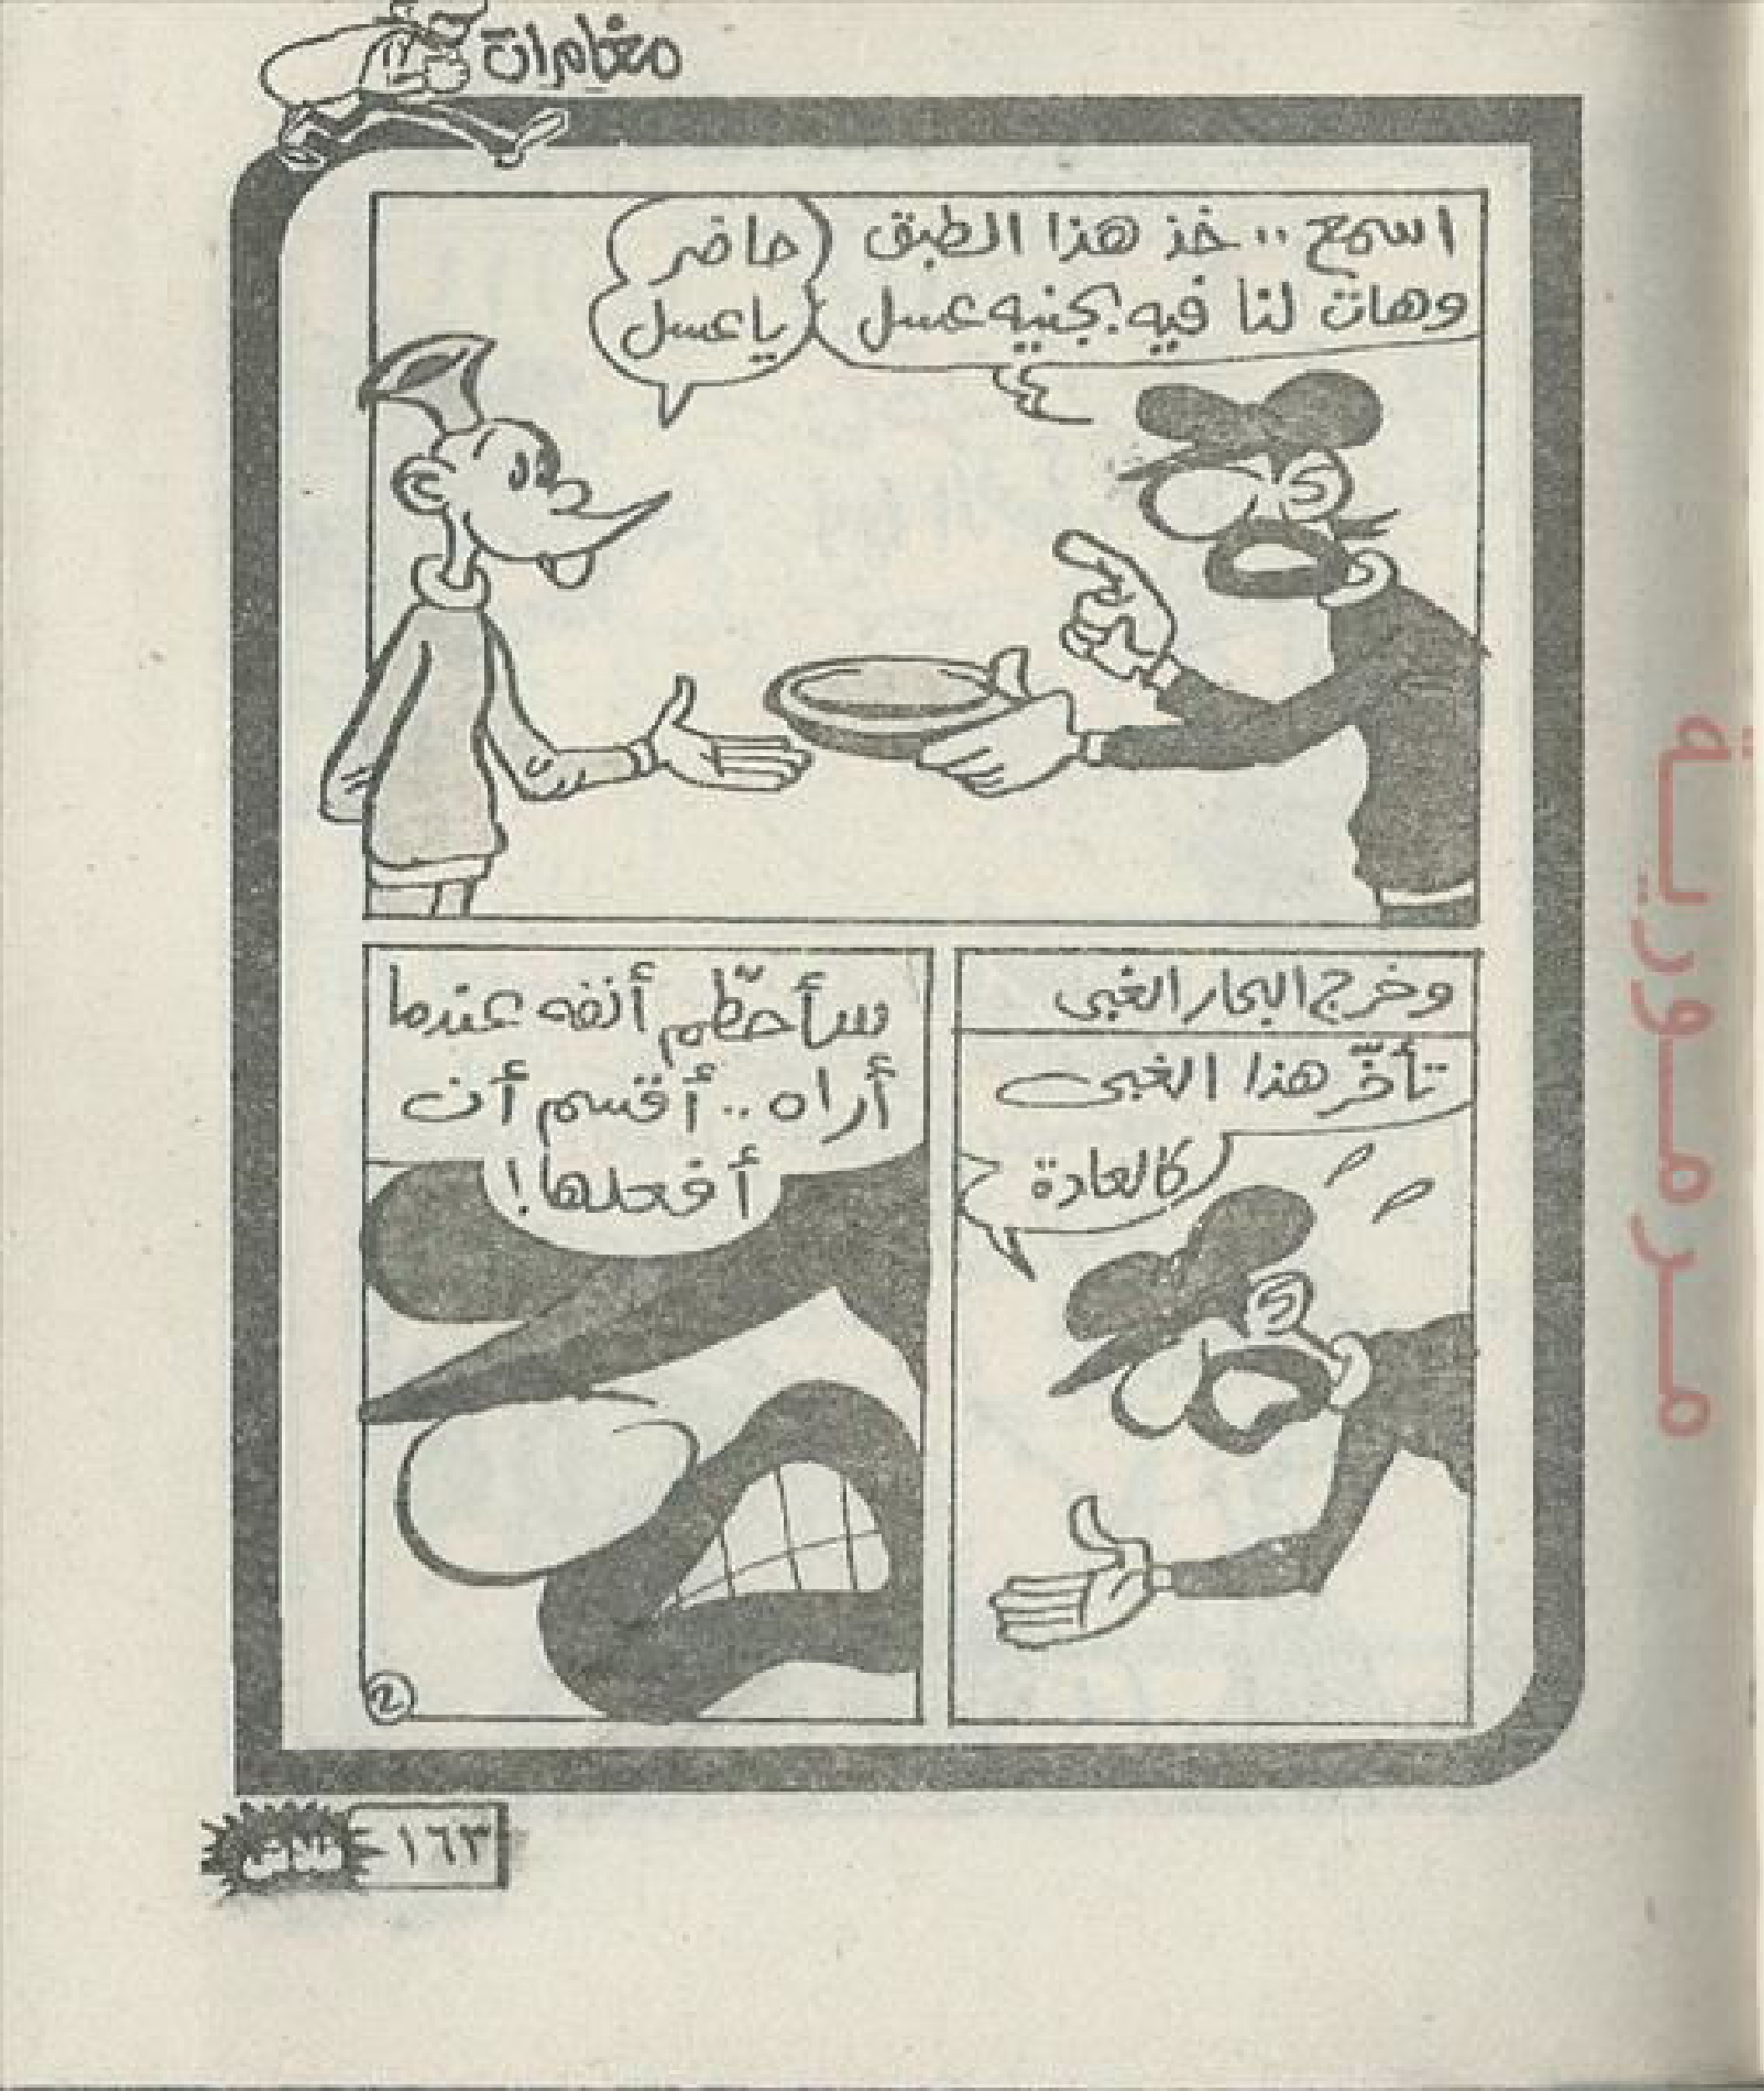 مغامرات
اسمع .. خذ هذا الطبق
وهات لنا فيه بجنيه عسل
حاضر
يا عسل
وخرج البحار الغبى
تأخّر هذا الغبى
كالعادة
سأحطّم أنفه عندما
أراه .. أقسم أن
أفعلها!
2
١٦٣
مرمورية